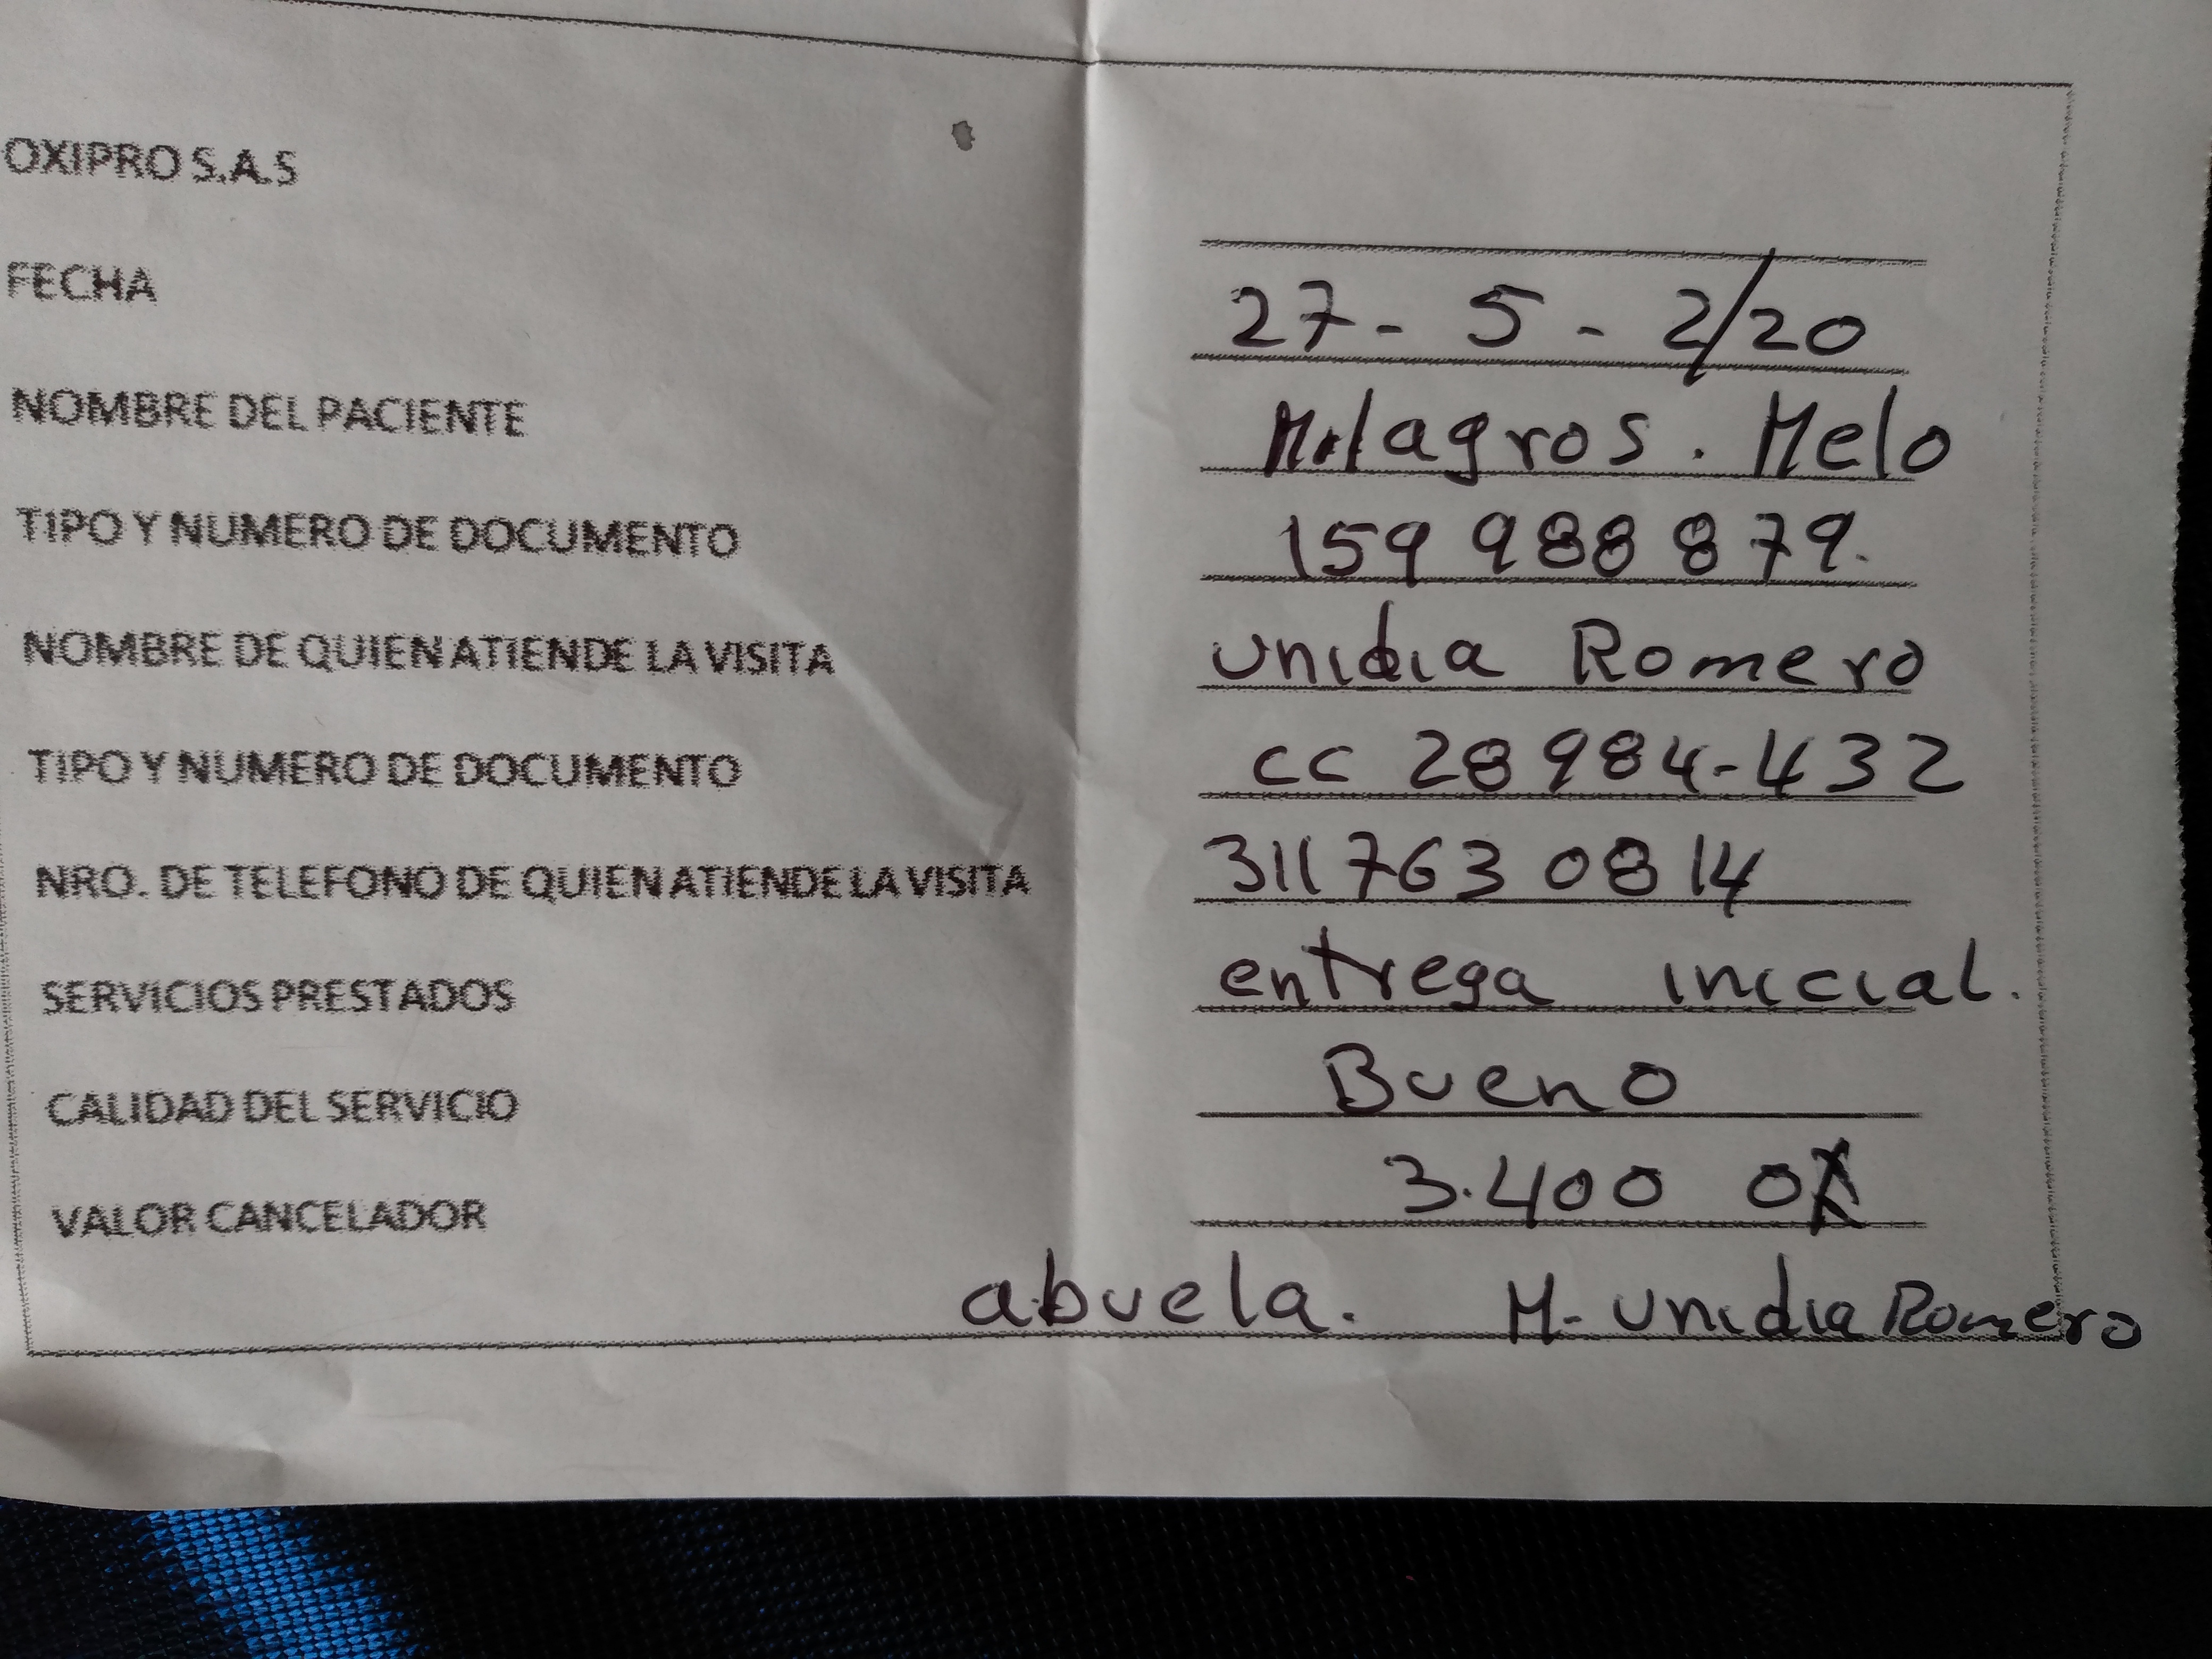 OXIPRO S.A.S
FECHA 27 - 5 - 2/20
NOMBRE DEL PACIENTE Milagros. Melo
TIPO Y NUMERO DE DOCUMENTO 159 988 879.
NOMBRE DE QUIEN ATIENDE LA VISITA Unidia Romero
TIPO Y NUMERO DE DOCUMENTO cc 28984-432
NRO. DE TELEFONO DE QUIEN ATIENDE LA VISITA 311763 0814
SERVICIOS PRESTADOS entrega inicial.
CALIDAD DEL SERVICIO Bueno
VALOR CANCELADOR 3.400 OK
abuela. M- Unidia Romero